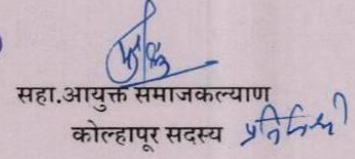 सहा.आयुक्त समाजकल्याण
कोल्हापूर सदस्य प्रतिनिधी